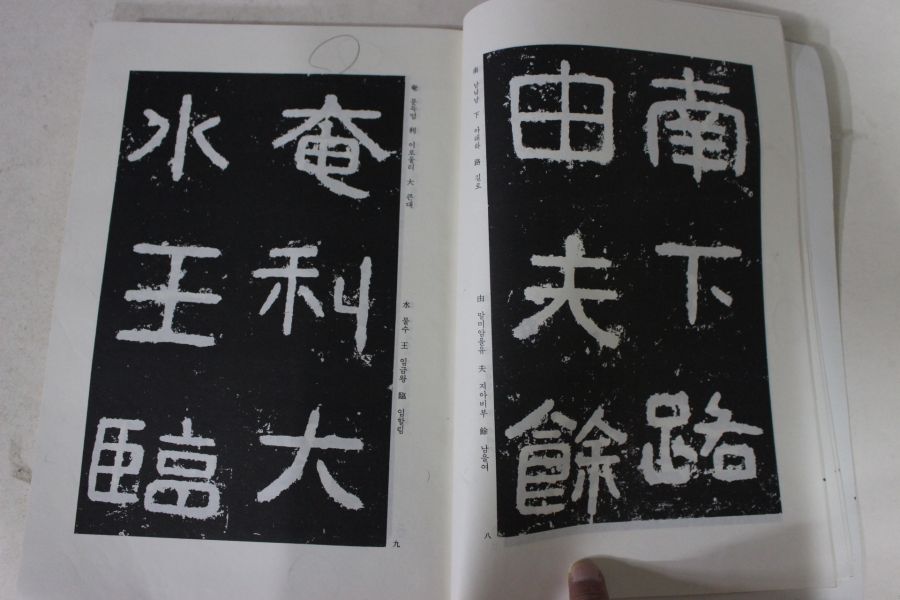 南下路
由夫餘
南 남녘남 下 아래하 路 길로
由 말미암을유 夫 지아비부 餘 남을여
八
奄 문득엄 利 이로울리 大 큰대
水 물수 王 임금왕 臨 임할림
奄利大
水王臨
九